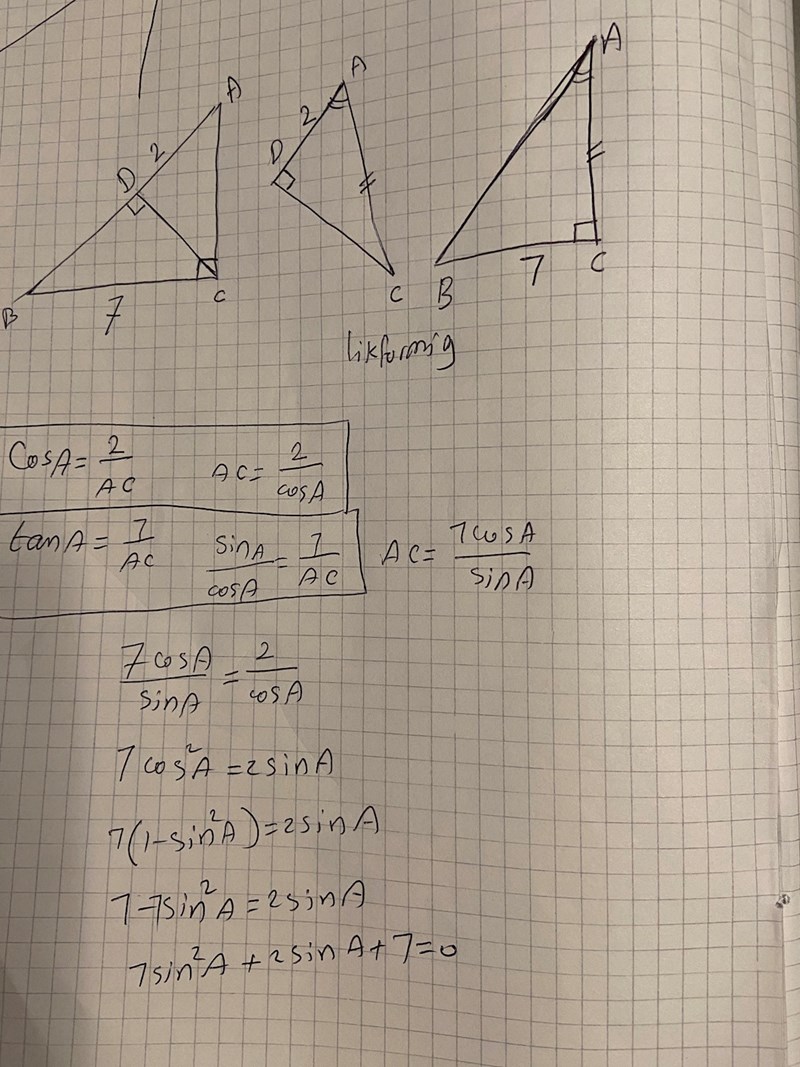 A
2
D
B
7
C
A
2
D
C
A
B
7
C
likformig
cosA = 2/AC    AC = 2/cosA
tanA = 7/AC    sinA/cosA = 7/AC    AC = 7cosA/sinA
7cosA/sinA = 2/cosA
7cos²A = 2sinA
7(1-sin²A) = 2sinA
7-7sin²A = 2sinA
7sin²A + 2sinA + 7 = 0